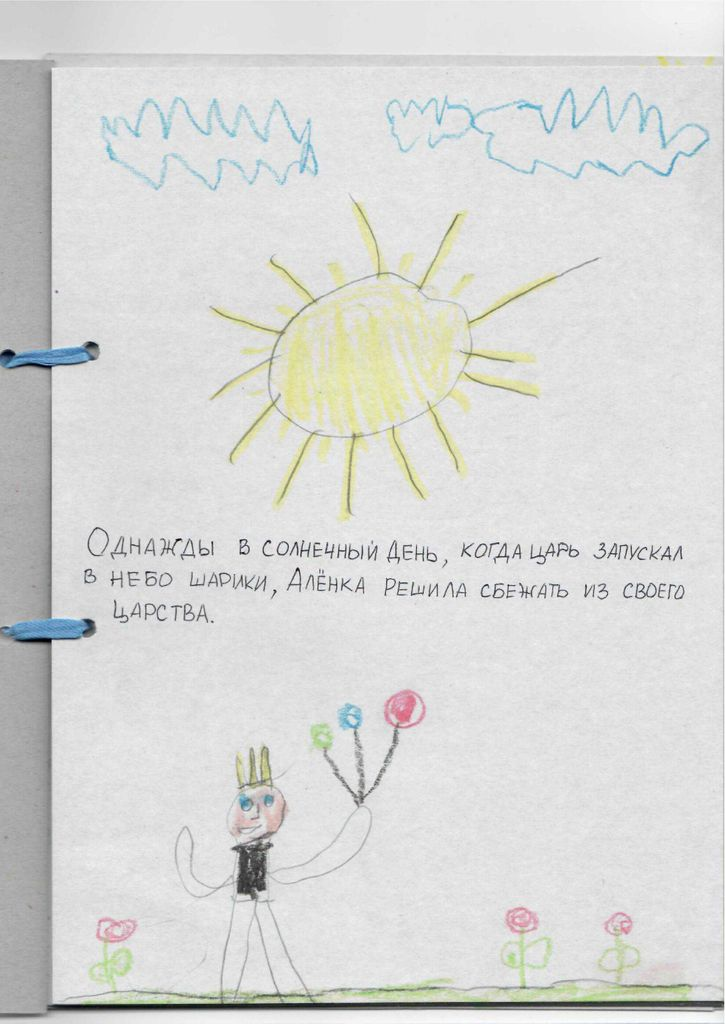 Однажды в солнечный день, когда царь запускал
в небо шарики, Алёнка решила сбежать из своего
царства.